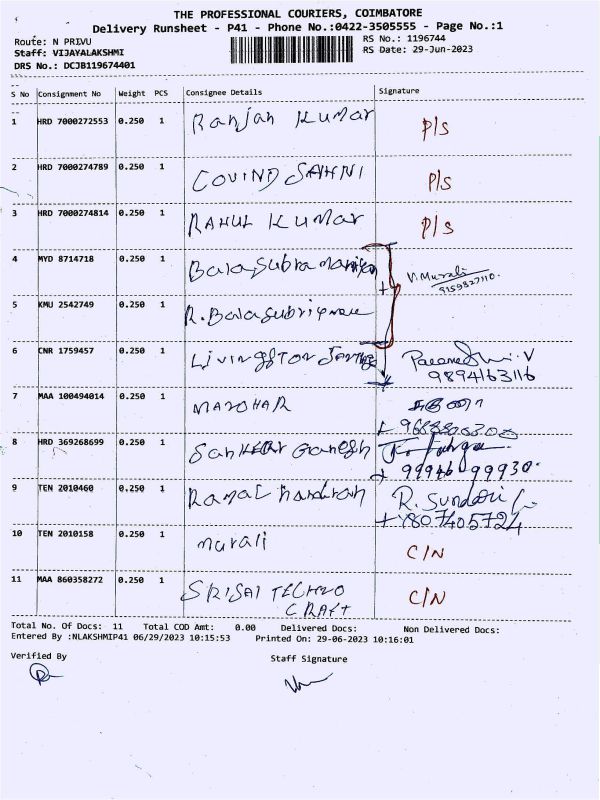 THE PROFESSIONAL COURIERS, COIMBATORE
Delivery Runsheet - P41 - Phone No.:0422-3505555 - Page No.:1
Route: N PRIVU RS No.: 1196744
Staff: VIJAYALAKSHMI RS Date: 29-Jun-2023
DRS No.: DCJB119674401
S No Consignment No Weight PCS Consignee Details Signature
1 HRD 7000272553 0.250 1 Ranjan Kumar P/S
2 HRD 7000274789 0.250 1 GOVIND SAHNI P/S
3 HRD 7000274814 0.250 1 RAHUL Kumar P/S
4 MYD 8714718 0.250 1 Balasubramaniyan V. Murali
9159327110.
5 KMU 2542749 0.250 1 R. Balasubri
6 CNR 1759457 0.250 1 Livingston V
9894163116
7 MAA 100494014 0.250 1 MANOHAR
8 HRD 369268699 0.250 1 Sankar Ganesh
99946 99930.
9 TEN 2010460 0.250 1 Ramachandran R. Sundari
807405724
10 TEN 2010158 0.250 1 murali C/N
11 MAA 860358272 0.250 1 SRISAI TECHNO C/N
CRAFT
Total No. Of Docs: 11 Total COD Amt: 0.00 Delivered Docs: Non Delivered Docs:
Entered By :NLAKSHMIP41 06/29/2023 10:15:53 Printed On: 29-06-2023 10:16:01
Verified By Staff Signature